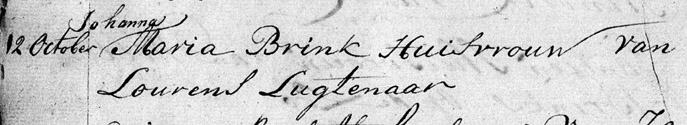 Johanna
12 October Maria Brink Huisvrouw van
Lourens Lugtenaar